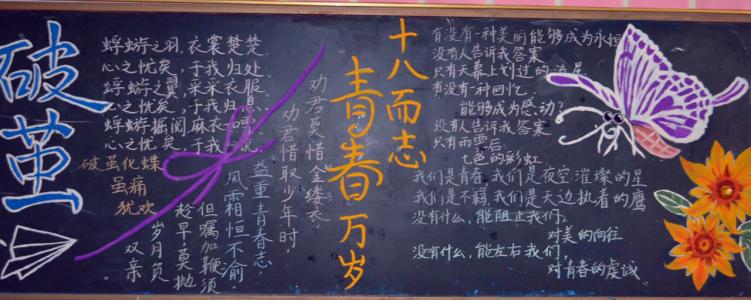 破茧
蜉蝣之羽，衣裳楚楚
心之忧矣，于我归处
蜉蝣之翼，采采衣服
心之忧矣，于我归息
蜉蝣掘阅，麻衣如雪
心之忧矣，于我归说
破茧化蝶
虽痛
犹欢
劝君莫惜金缕衣，
劝君惜取少年时，
益重青春志，
风霜恒不渝，
但嘱加鞭须
趁早，莫抛
岁月负
双亲
十八而志
青春万岁
有没有一种美丽能够成为永恒
没有人告诉我答案
只有天幕上划过的流星
有没有一种回忆
能够成为感动？
没有人告诉我答案
只有雨季后
七色的彩虹
我们是青春，我们是夜空璀璨的星
我们是不羁，我们是天边执着的鹰
没有什么，能阻止我们，
对美的向往
没有什么，能左右我们，
对青春的虔诚